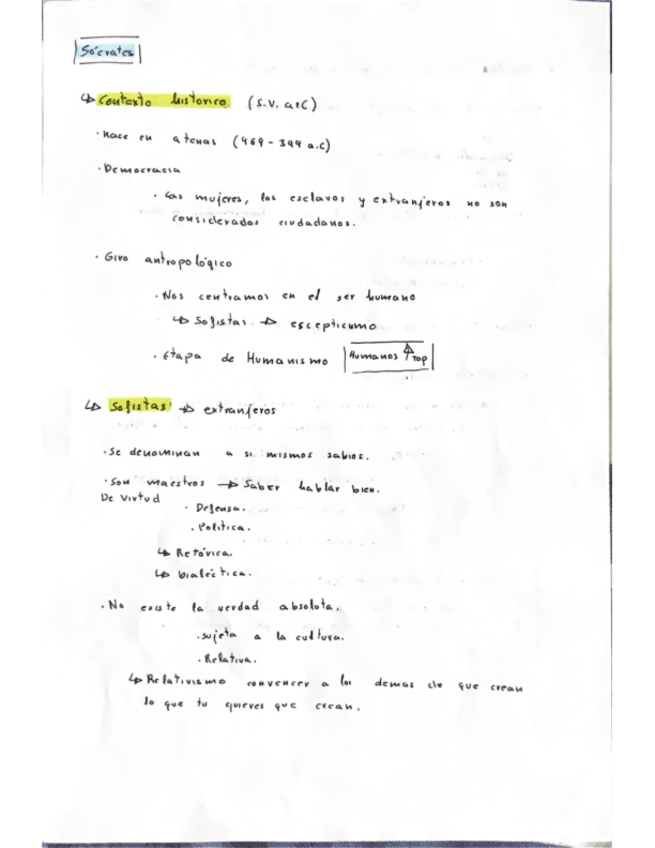 Sócrates
↳ Contexto historico (S.V. a.C)
· Nace en atenas (469 - 399 a.c)
· Democracia
· Las mujeres, los esclavos y extranjeros no son
considerados ciudadanos.
· Giro antropológico
· Nos centramos en el ser humano
↳ Sofistas. → escepticumo
· Etapa de Humanismo Humanos ↑ Top
↳ Sofistas → extranjeros
· Se denominan a si mismos sabios.
· Son maestros → Saber hablar bien.
De Virtud
· Defensa.
· Política.
↳ Retórica.
↳ Dialéctica.
· No existe la verdad absoluta.
· sujeta a la cultura.
· Relativa.
↳ Relativismo convencer a los demas de que crean
lo que tu quieres que crean.